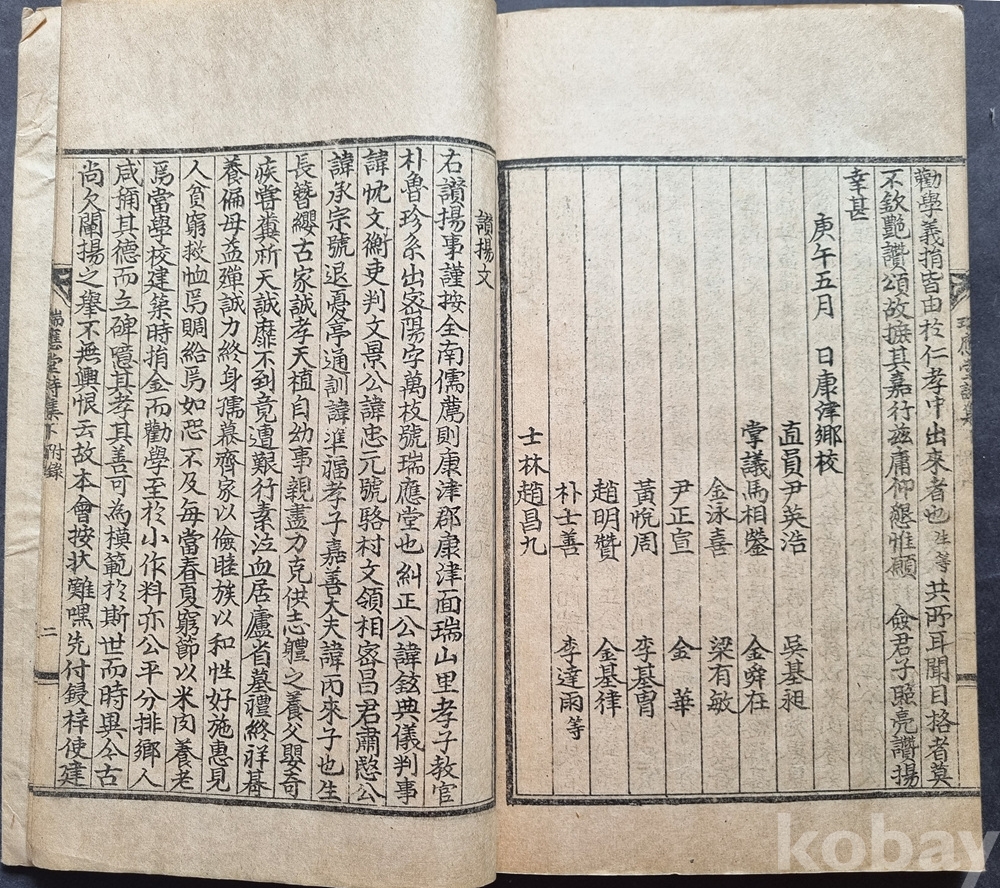 勸學義捐皆由於仁孝中出來者也生等共所耳聞目格者莫
不欽艶讚頌故摭其嘉行玆庸仰懇惟願 僉君子照亮讚揚
幸甚
庚午五月 日康津鄕校
直員尹英浩 吳基昶
掌議馬相瑩 金舜在
金泳喜 梁有敏
尹正宣 金 華
黃悅周 李基胄
趙明贊 金基律
朴士善 李達雨等
士林趙昌九
讚揚文
右讃揚事謹按全南儒薦則康津郡康津面瑞山里孝子敎官
朴魯珍系出密陽字萬枝號瑞應堂也糾正公諱鉉典儀判事
諱忱文衡吏判文景公諱忠元號駱村文領相密昌君肅愍公
諱承宗號退憂亭通訓諱準福孝子嘉善大夫諱丙來子也生
長簪纓古家誠孝天植自幼事親盡力克供志體之養父嬰奇
疾嘗糞祈天誠靡不到竟遭艱行素泣血居廬省墓禮終祥朞
養偏母益殫誠力終身孺慕齊家以儉睦族以和性好施惠見
人貧窮救恤焉賙給焉如恐不及每當春夏窮節以米肉養老
爲當學校建築時捐金而勸學至於小作料亦公平分排鄕人
咸稱其德而立碑噫其孝其善可為模範於斯世而時異今古
尚欠闡揚之擧不無興恨云故本會按狀難嘿先付鋟梓使建
瑞應堂詩集下 附錄
二
kobay